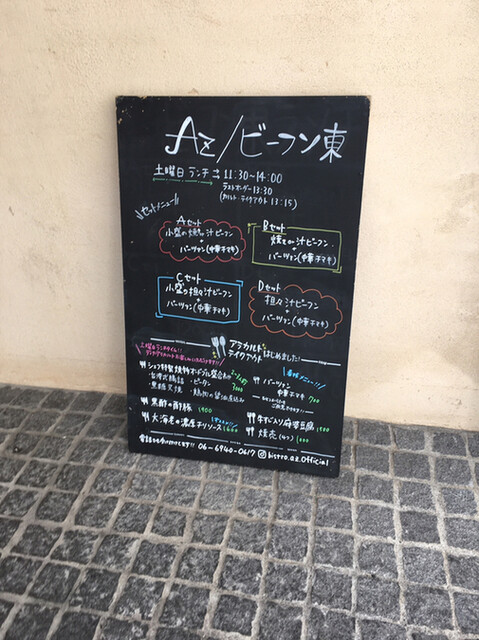 Az/ビーフン東
土曜日 ランチ ⇒ 11:30~14:00
ラストオーダー13:30
(アラカルト・テイクアウト 13:15)
\\セットメニュー//
Aセット
小盛の焼か汁ビーフン
+
バーツァン(中華チマキ)
Bセット
焼きか汁ビーフン
+
バーツァン(中華チマキ)
Cセット
小盛の担々汁ビーフン
+
バーツァン(中華チマキ)
Dセット
担々汁ビーフン
+
バーツァン(中華チマキ)
アラカルト
テイクアウト はじめました!
土曜日ランチタイム!!
シェフ特製焼物オードブル盛合わせ
・ピータン
3000
・黒糖叉焼
黒酢の酢豚 1900
大海老の濃厚チリソース 1600
看板メニュー!!
バーツァン
中華チマキ 700
牛すじ入り麻婆豆腐 1500
焼売(4つ) 1000
06-6940-0617 bistro.az.official